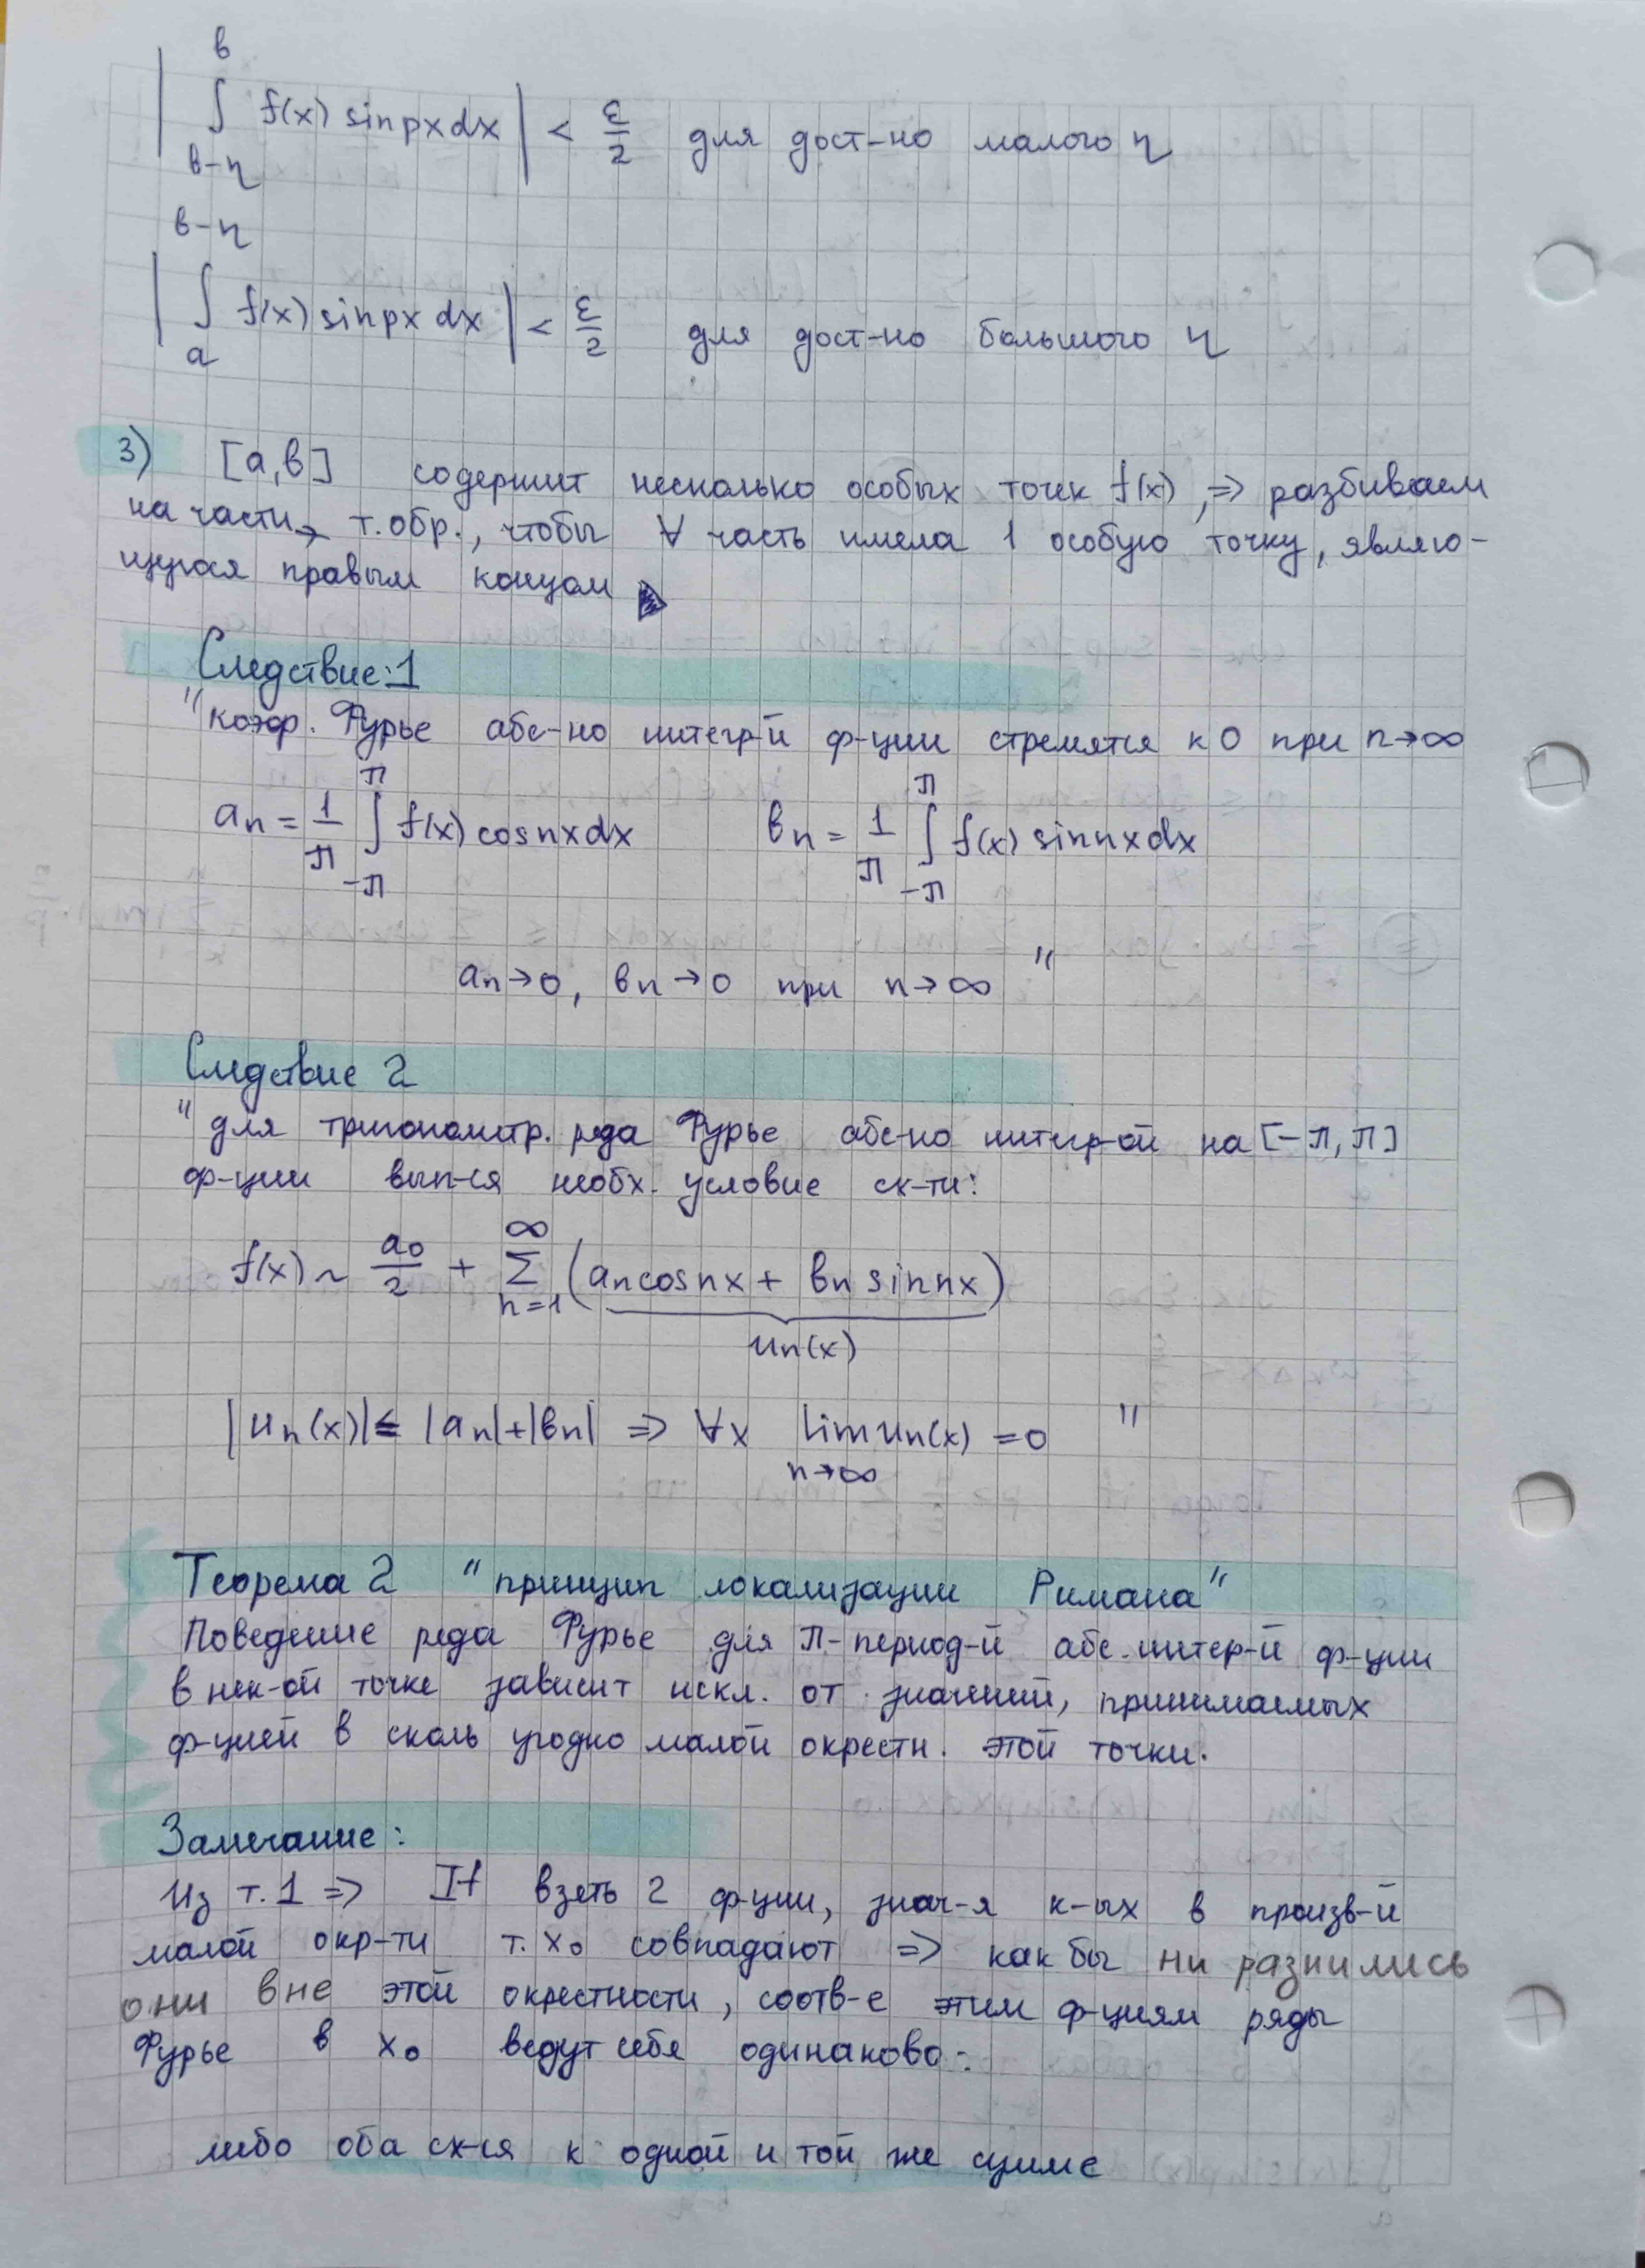 | ∫_{в-η}^{в} f(x) sin px dx | < ε/2 для дост-но малого η
| ∫_{a}^{в-η} f(x) sin px dx | < ε/2 для дост-но большого η
3) [a,в] содержит несколько особых точек f(x), ⇒ разбиваем
на части, т.обр., чтобы ∀ часть имела 1 особую точку, являю-
щуюся правым концом ▶
Следствие:1
"коэф. Фурье абс-но интегр-й ф-ции стремятся к 0 при n→∞
aₙ = 1/π ∫_{-π}^{π} f(x) cos nx dx вₙ = 1/π ∫_{-π}^{π} f(x) sin nx dx
aₙ→0, вₙ→0 при n→∞ "
Следствие 2
"для тригонометр. ряда Фурье абс-но интегр-ой на [-π, π]
ф-ции вып-ся необх. условие сх-ти:
f(x) ~ a₀/2 + ∑_{n=1}^{∞} (aₙ cos nx + вₙ sin nx)
uₙ(x)
|uₙ(x)| ≤ |aₙ|+|вₙ| ⇒ ∀x lim uₙ(x) = 0 "
n→∞
Теорема 2 "принцип локализации Римана"
Поведение ряда Фурье для π-период-й абс. интегр-й ф-ции
в нек-ой точке зависит искл. от значений, принимаемых
ф-цией в сколь угодно малой окрестн. этой точки.
Замечание:
Из т.1 ⇒ If взять 2 ф-ции, знач-я к-ых в произв-й
малой окр-ти т. x₀ совпадают ⇒ как бы ни разнились
они вне этой окрестности, соотв-е этим ф-циям ряды
Фурье в x₀ ведут себя одинаково:
либо оба сх-ся к одной и той же сумме